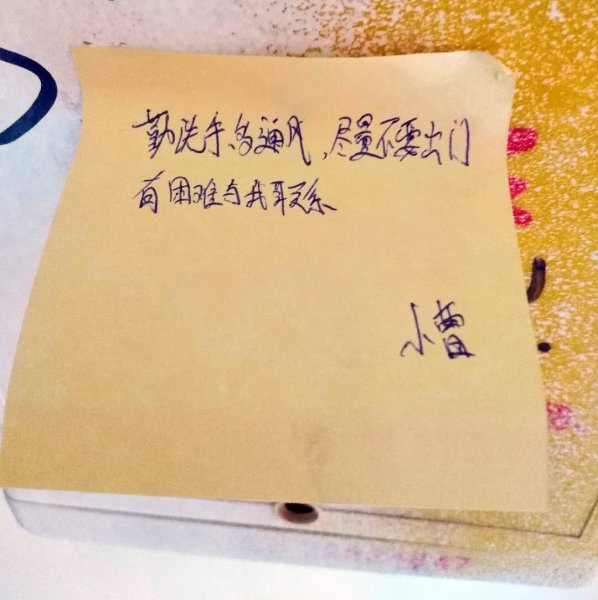 勤洗手,多通风,尽量不要出门
有困难与我联系
小曹